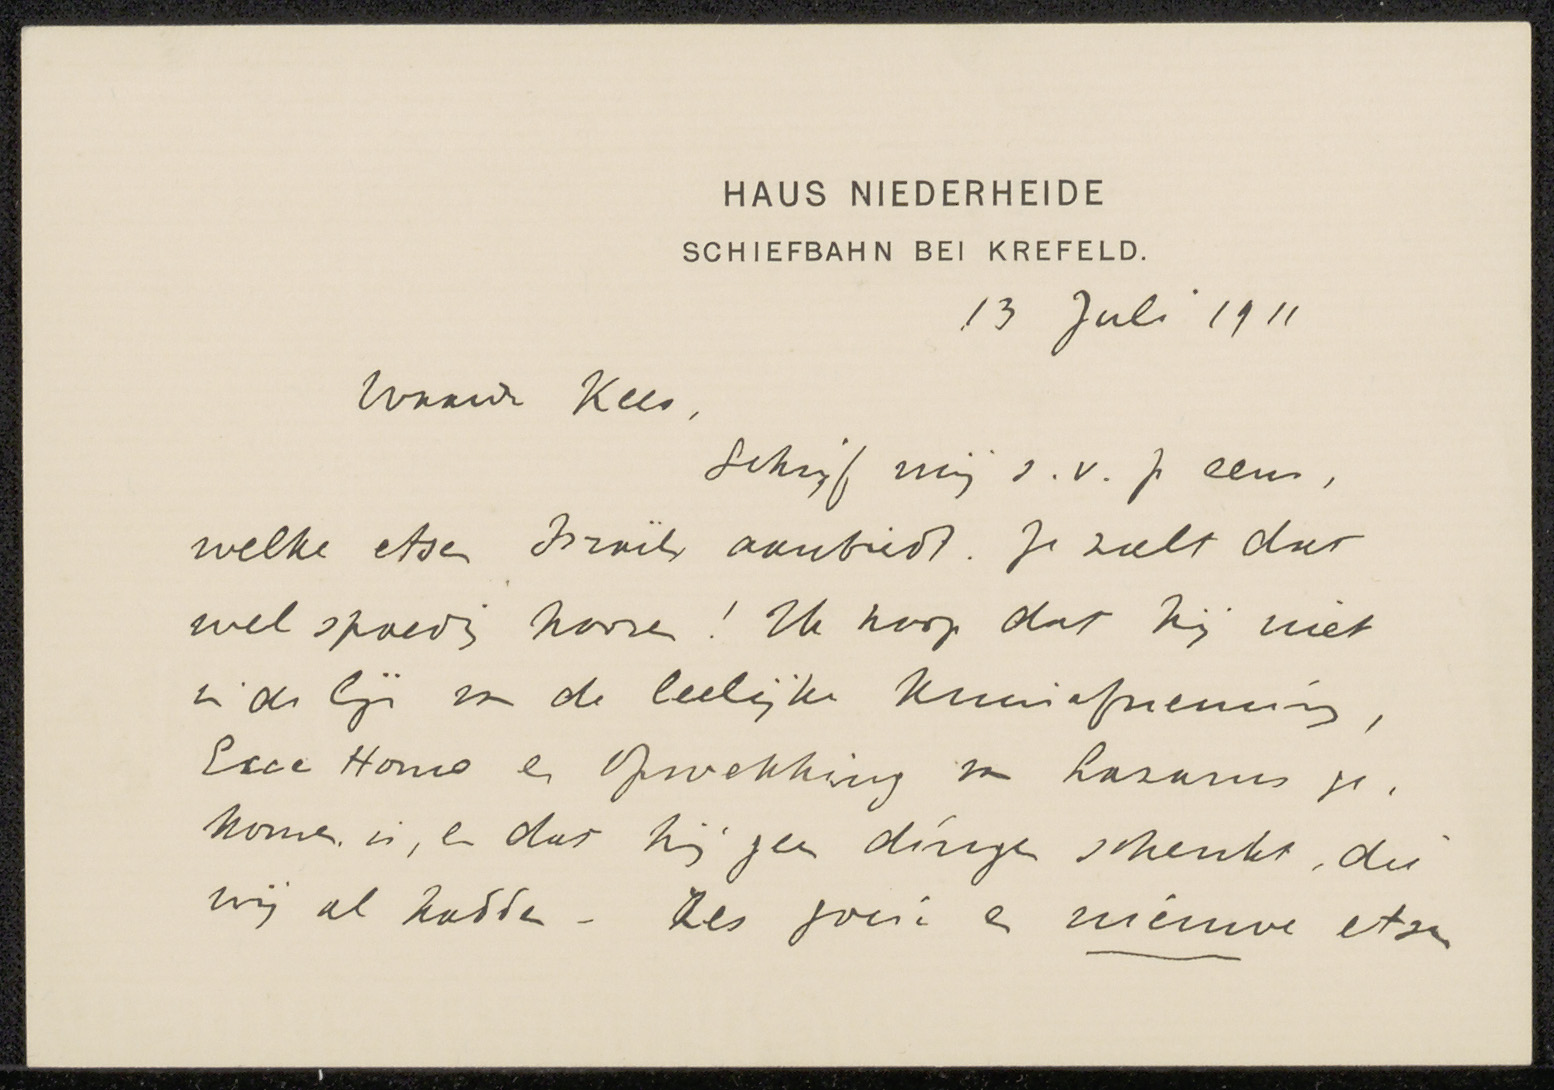 HAUS NIEDERHEIDE
SCHIEFBAHN BEI KREFELD.
13 Juli 1911
Waarde Kees,
Schrijf mij s.v.p eens,
welke etsen Israëls aanbiedt. Je zult dat
wel spoedig hooren! Ik hoop dat hij niet
in de lijn van de leelijke Kruisafneming,
Ecce Homo en Opwekking van Lazarus ge,
komen is, en dat hij geen dingen schenkt, die
wij al hadden - Zes goeie en nieuwe etsen